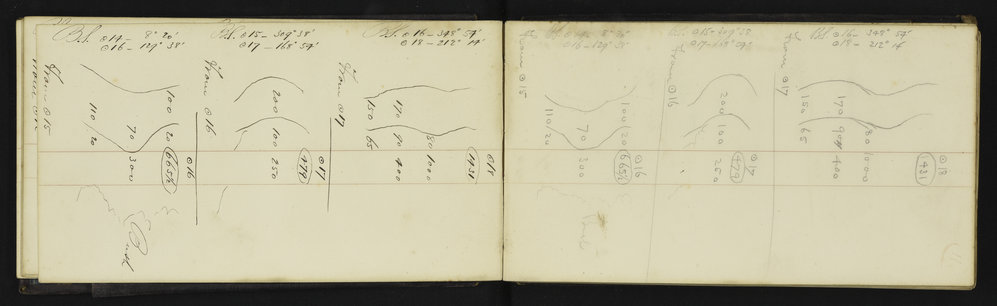 B.S. ⊙14 – 8° 20'
⊙16 – 129° 38'
B.S. ⊙15 – 309° 38'
⊙17 – 168° 54'
B.S. ⊙16 – 348° 54'
⊙18 – 212° 14'
From ⊙15
110 / 20
70 300
100 20 665½
⊙16
Bush
From ⊙16
200 100 250
479
⊙17
From ⊙17
150 65
170 90 400
80 1000
1431
⊙18
B.S. ⊙14 – 8° 20'
⊙16 – 129° 38'
B.S. ⊙15 – 309° 38'
⊙17 – 168° 54'
B.S. ⊙16 – 348° 54'
⊙18 – 212° 14'
From ⊙15
110 / 20
70 300
100 20 665½
⊙16
From ⊙16
200 100 250
479
⊙17
From ⊙17
150 65
170 90 400
80 1000
1431
⊙18